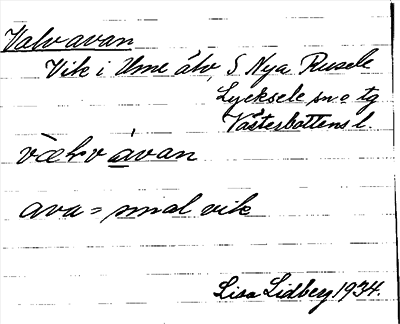 Valvavan
Vik i Ume älv, S Nya Rusele
Lycksele sn o tg
Västerbottens l.
væḷvávan
ava = smal vik
Lisa Lidberg 1934.